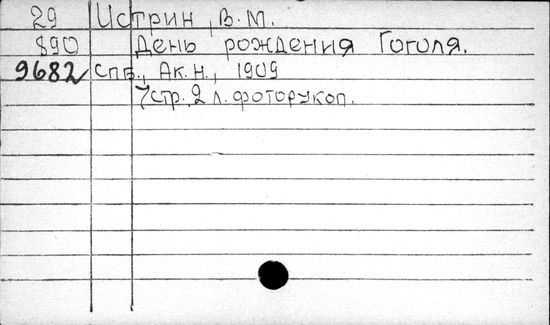 29 Истрин, В. М.
890 День рождения Гоголя.
9682 Спб., Ак. н., 1909
7 стр. 2 л. фоторукоп.